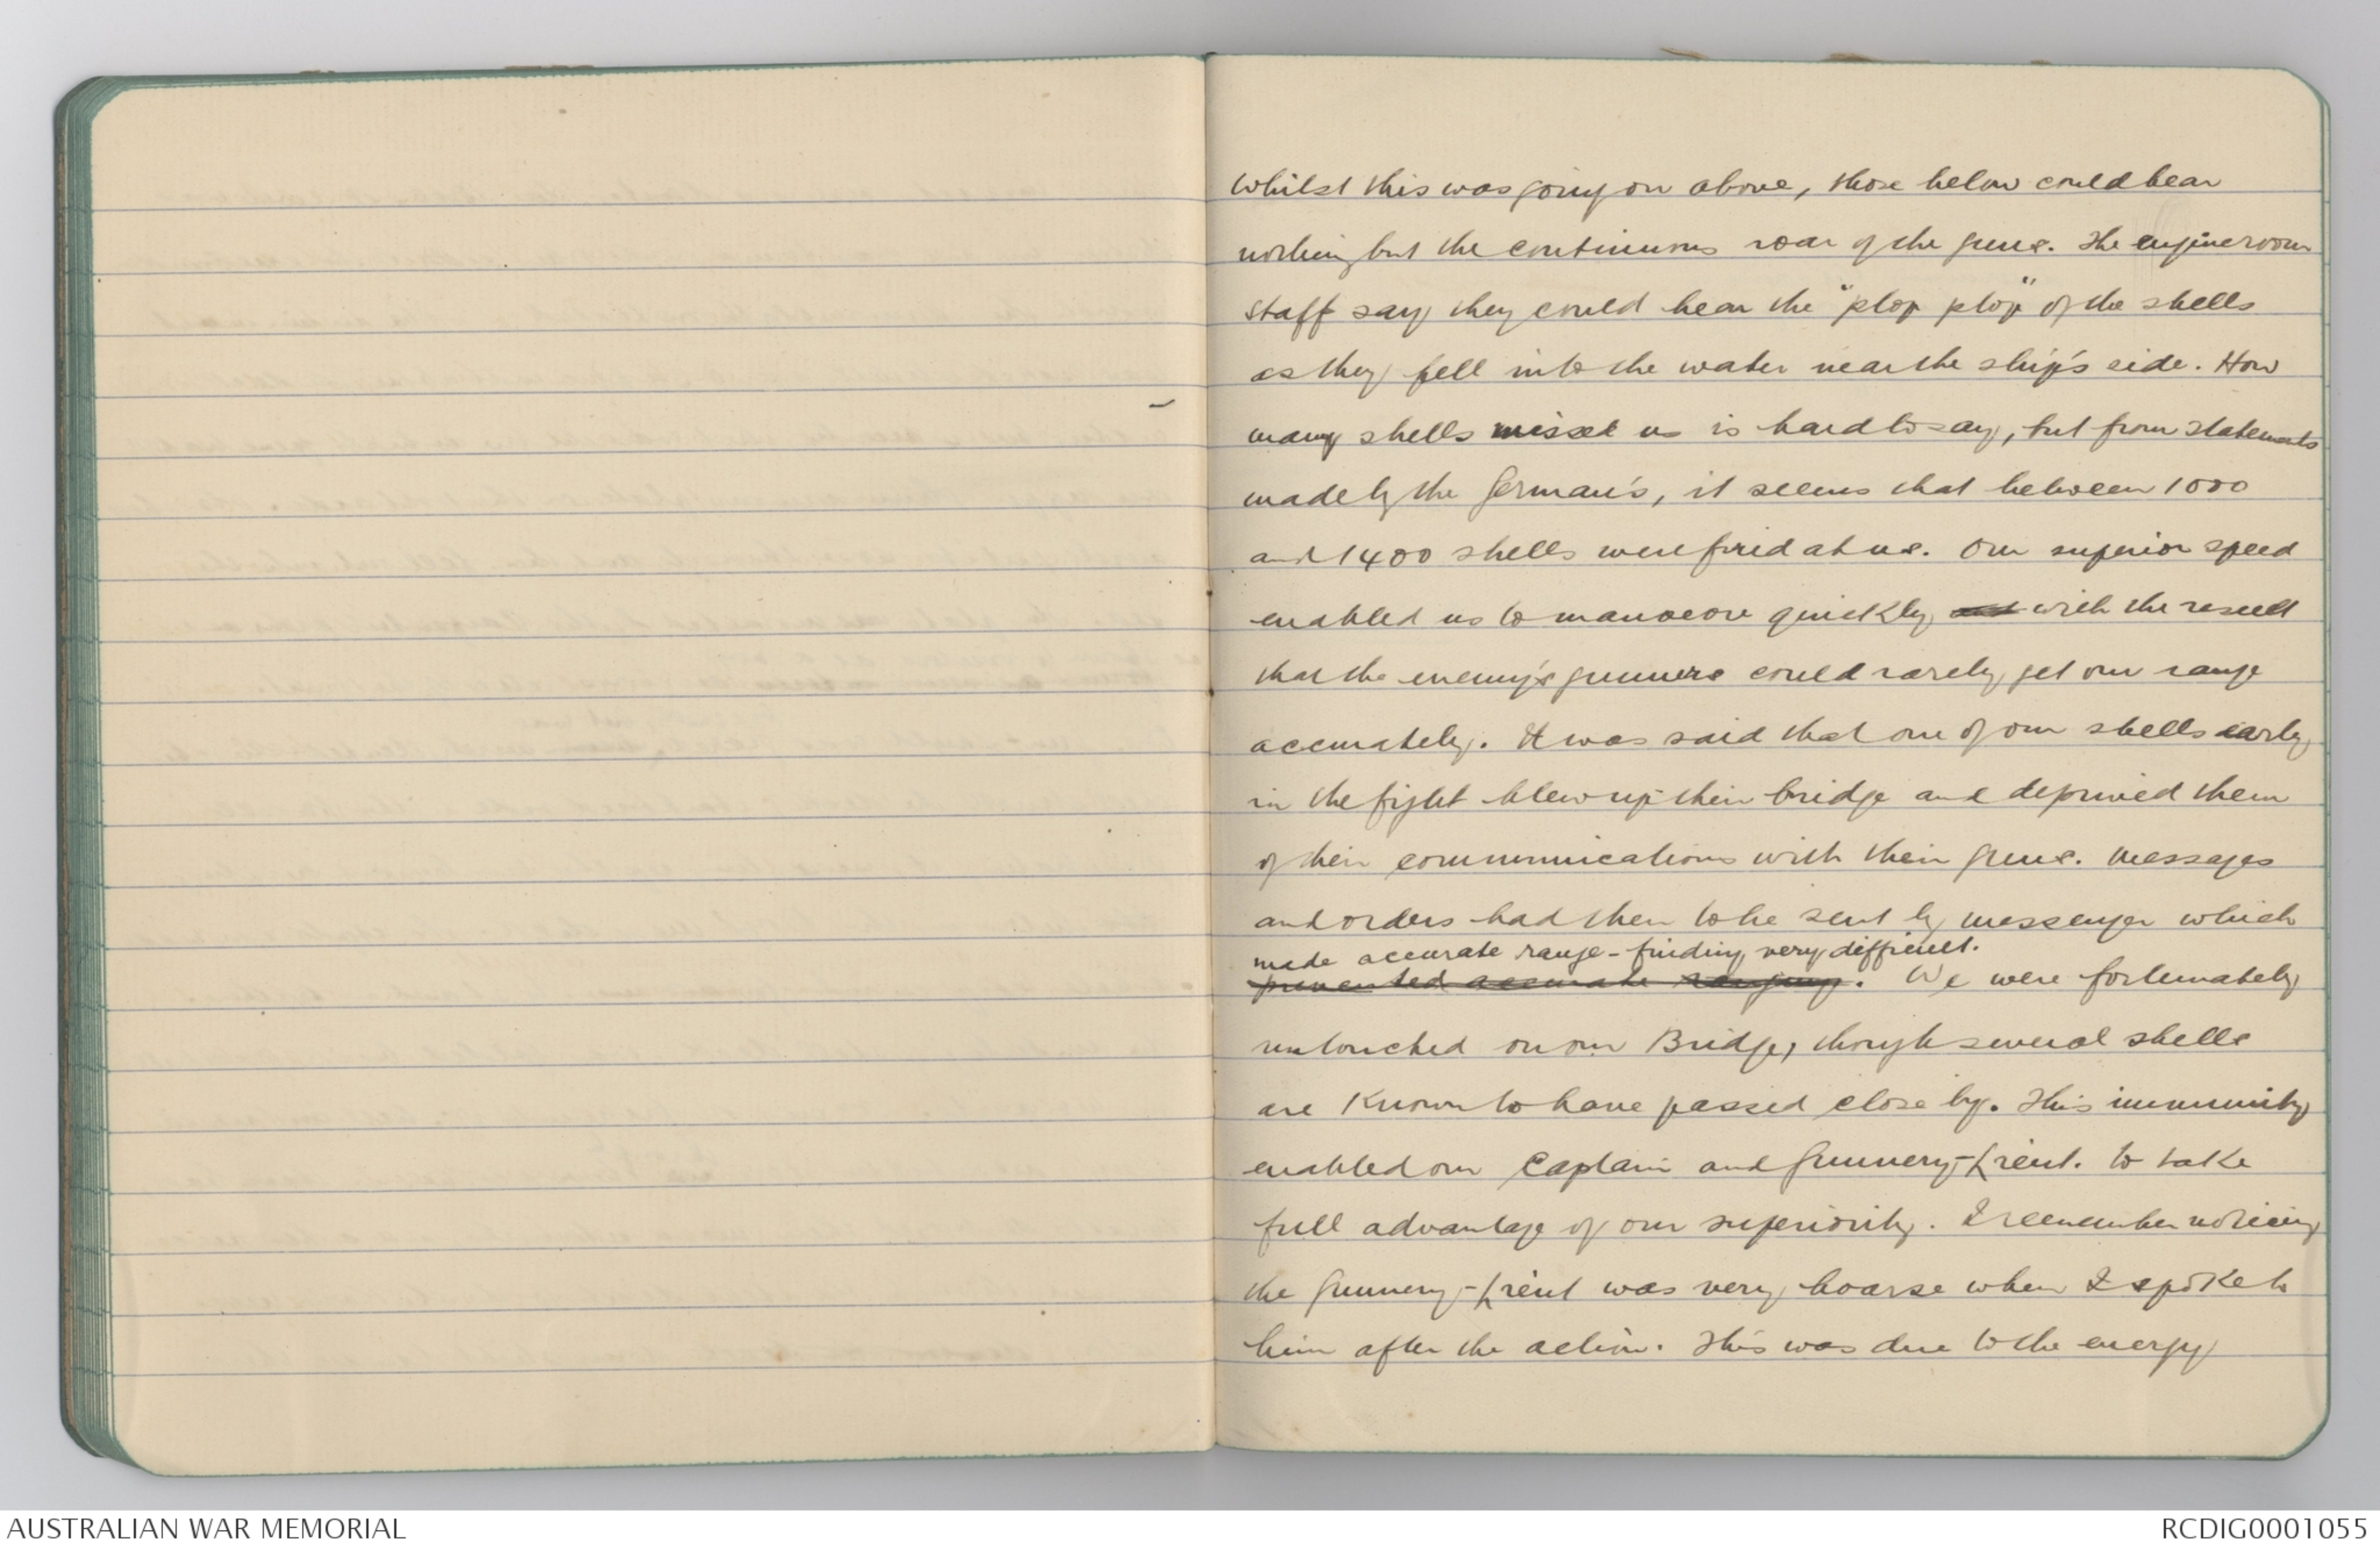 Whilst this was going on above, those below could hear
nothing but the continuous roar of the guns. The engineroom
staff say they could hear the "plop plop" of the shells
as they fell into the water near the ship's side. How
many shells missed us is hard to say, but from statements
made by the German's, it seems that between 1000
and 1400 shells were fired at us. Our superior speed
enabled us to manoeore quickly, and with the result
that the enemy's gunners could rarely get our range
accurately. It was said that one of our shells early
in the fight blew up their bridge and deprived them
of their communications with their guns. Messages
and orders had then to be sent by messenger which
made accurate range-finding very difficult.
prevented accurate ranging. We were fortunately
untouched on our Bridge, though several shells
are known to have passed close by. This immunity
enabled our Captain and Gunnery-Lieut. to take
full advantage of our superiority. I remember noticing
the Gunnery-Lieut was very hoarse when I spoke to
him after the action. This was due to the energy
AUSTRALIAN WAR MEMORIAL
RCDIG0001055